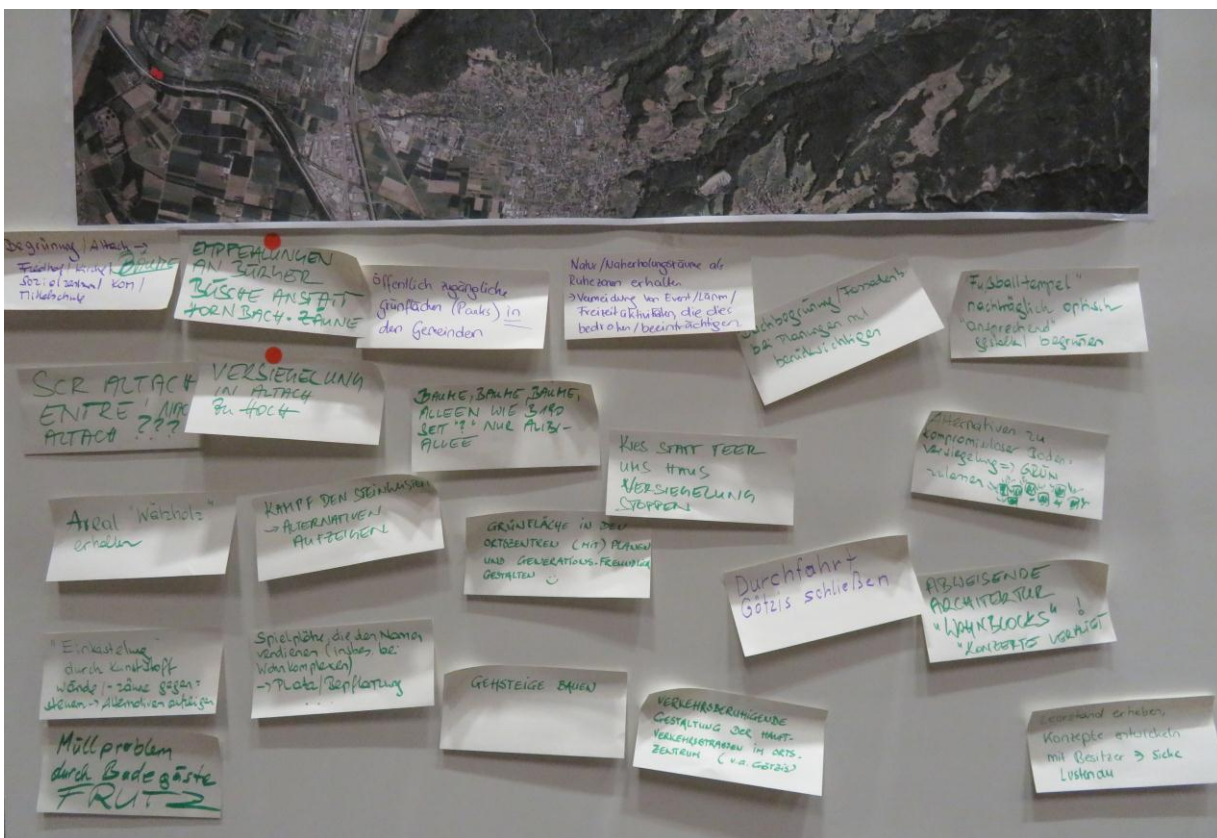 Begrünung / Altach →
Friedhof / Kirche / BÄUME
Sozialzentrum / KOM /
Mittelschule
EMPFEHLUNGEN
AN BÜRGER
BÜSCHE ANSTATT
HORNBACH-ZÄUNE
öffentlich zugängliche
grünflächen (Parks) in
den Gemeinden
Natur/Naherholungsräume als
Ruhezonen erhalten
→ Vermeidung von Event/Lärm/
Freizeitaktivitäten, die dies
bedrohen/beeinträchtigen
Dachbegrünung/Fassadenb.
bei Planungen mit
berücksichtigen
"Fußballtempel"
nachträglich optisch
"ansprechend"
begrünen
SCR ALTACH
ENTRE
ALTACH ???
VERSIEGELUNG
IN ALTACH
ZU HOCH
BÄUME, BÄUME, BÄUME,
ALLEEN WIE B190
"?" NUR ALIBI-
ALLEE
KIES STATT TEER
UMS HAUS
VERSIEGELUNG
STOPPEN
Alternativen zu
kompromissloser Boden-
versiegelung => GRÜN
zulassen
Areal "Wälzholz"
erhalten
KAMPF DEN STEINWÜSTEN
→ ALTERNATIVEN
AUFZEIGEN
GRÜNFLÄCHE IN DEN
ORTSZENTREN (MIT) PLANEN
UND GENERATIONS-FREUNDLICH
GESTALTEN
Durchfahrt
Götzis schließen
ABWEISENDE
ARCHITEKTUR
"WOHNBLOCKS" !
"KONZEPTE
"Einkastelung"
durch Kunststoff
wände/-zäune gegen-
steuern → Alternativen aufzeigen
Spielplätze, die den Namen
verdienen (insbes. bei
Wohnkomplexen)
→ Platz/Bepflanzung
...
GEHSTEIGE BAUEN
VERKEHRSBERUHIGENDE
GESTALTUNG DER HAUPT-
VERKEHRSSTRASSEN IM ORTS-
ZENTRUM (v.a. GÖTZIS)
Leerstand erheben,
Konzepte entwickeln
mit Besitzer → siehe
Lustenau
Müllproblem
durch Badegäste
FRUTZ